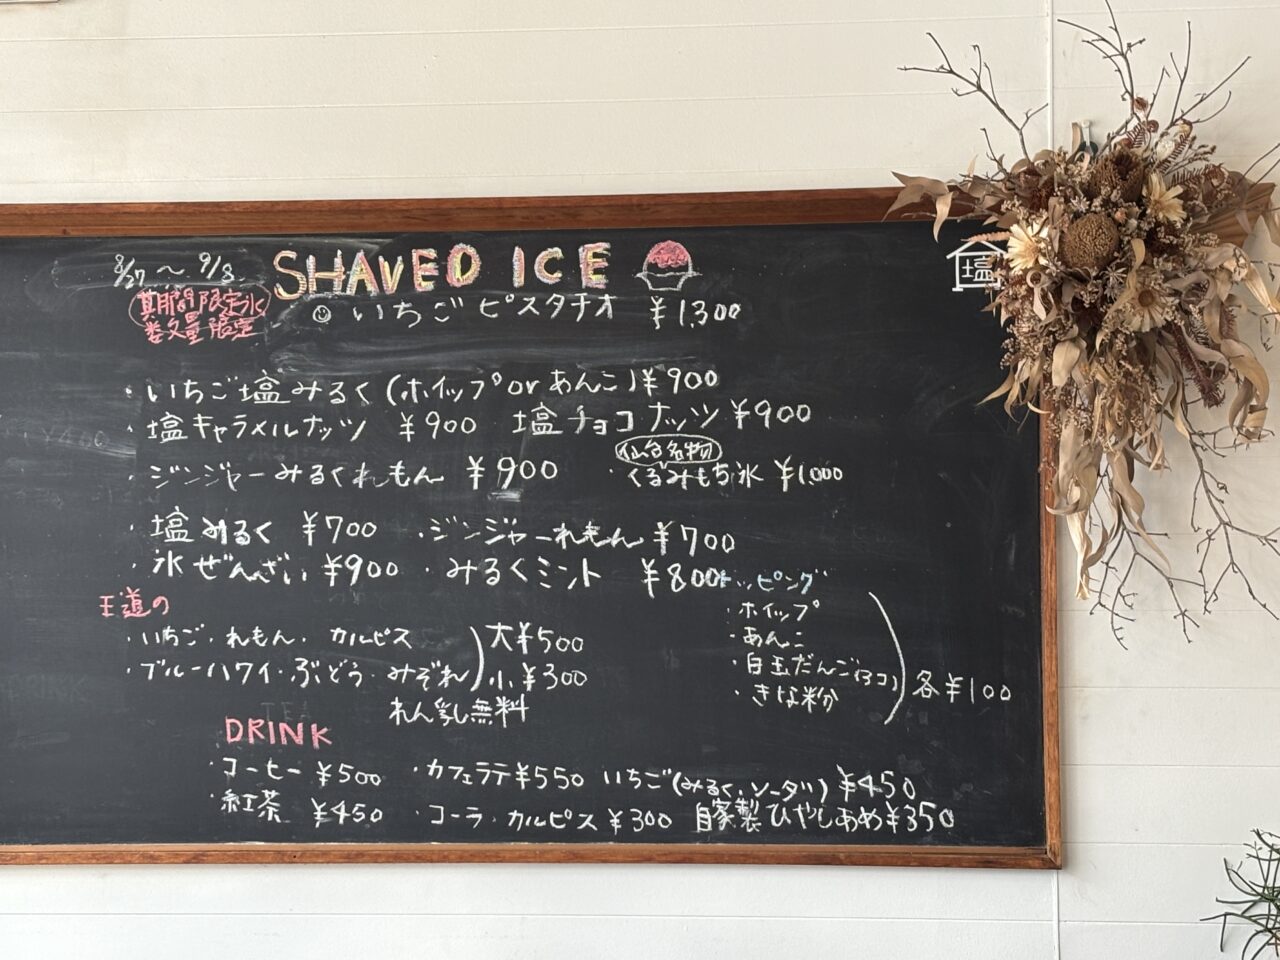 8/27 ～ 9/8
SHAVED ICE
塩
期間限定氷
数量限定
いちごピスタチオ ¥1,300
・いちご塩みるく(ホイップorあんこ)¥900
・塩キャラメルナッツ ¥900 塩チョコナッツ ¥900
仙台名物
・ジンジャーみるくれもん ¥900 ・くるみもち氷 ¥1,000
・塩みるく ¥700 ・ジンジャーれもん ¥700
・氷ぜんざい ¥900 ・みるくミント ¥800
王道の
・いちご・れもん・カルピス
・ブルーハワイ・ぶどう・みぞれ
大¥500
小¥300
れん乳し無料
トッピング
・ホイップ
・あんこ
・白玉だんご(3コ)
・きな粉
各¥100
DRINK
・コーヒー ¥500 ・カフェラテ¥550 いちご(みるく・ソーダ) ¥450
・紅茶 ¥450 ・コーラ・カルピス ¥300 自家製ひやしあめ¥350